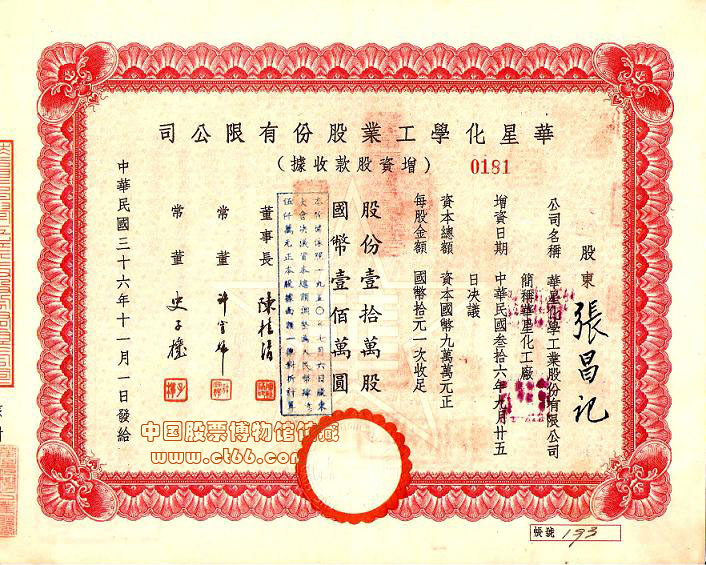 華星化學工業股份有限公司
(增資股款收據)
0181
股東 張昌記
公司名稱 華星化學工業股份有限公司
簡稱華星化工廠
增資日期 中華民國叁拾六年九月廿五
日決議
資本總額 資本國幣九萬萬元正
每股金額 國幣拾元一次收足
股份壹拾萬股
國幣壹佰萬圓
伍仟萬元正本股據面額一律對折計算
董事長
常董
常董 史
中華民國三十六年十一月一日發給
中国股票博物馆馆藏
www.ct66.com
帳號 193